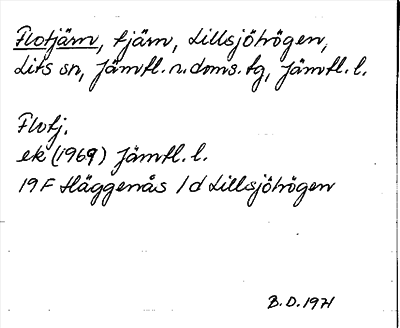 Flotjärn, tjärn, Lillsjöhögen,
Lits sn, Jämtl. n. doms. tg, Jämtl. l.
Flotj.
ek (1969) Jämtl. l.
19F Häggenås 1d Lillsjöhögen
B.D. 1971